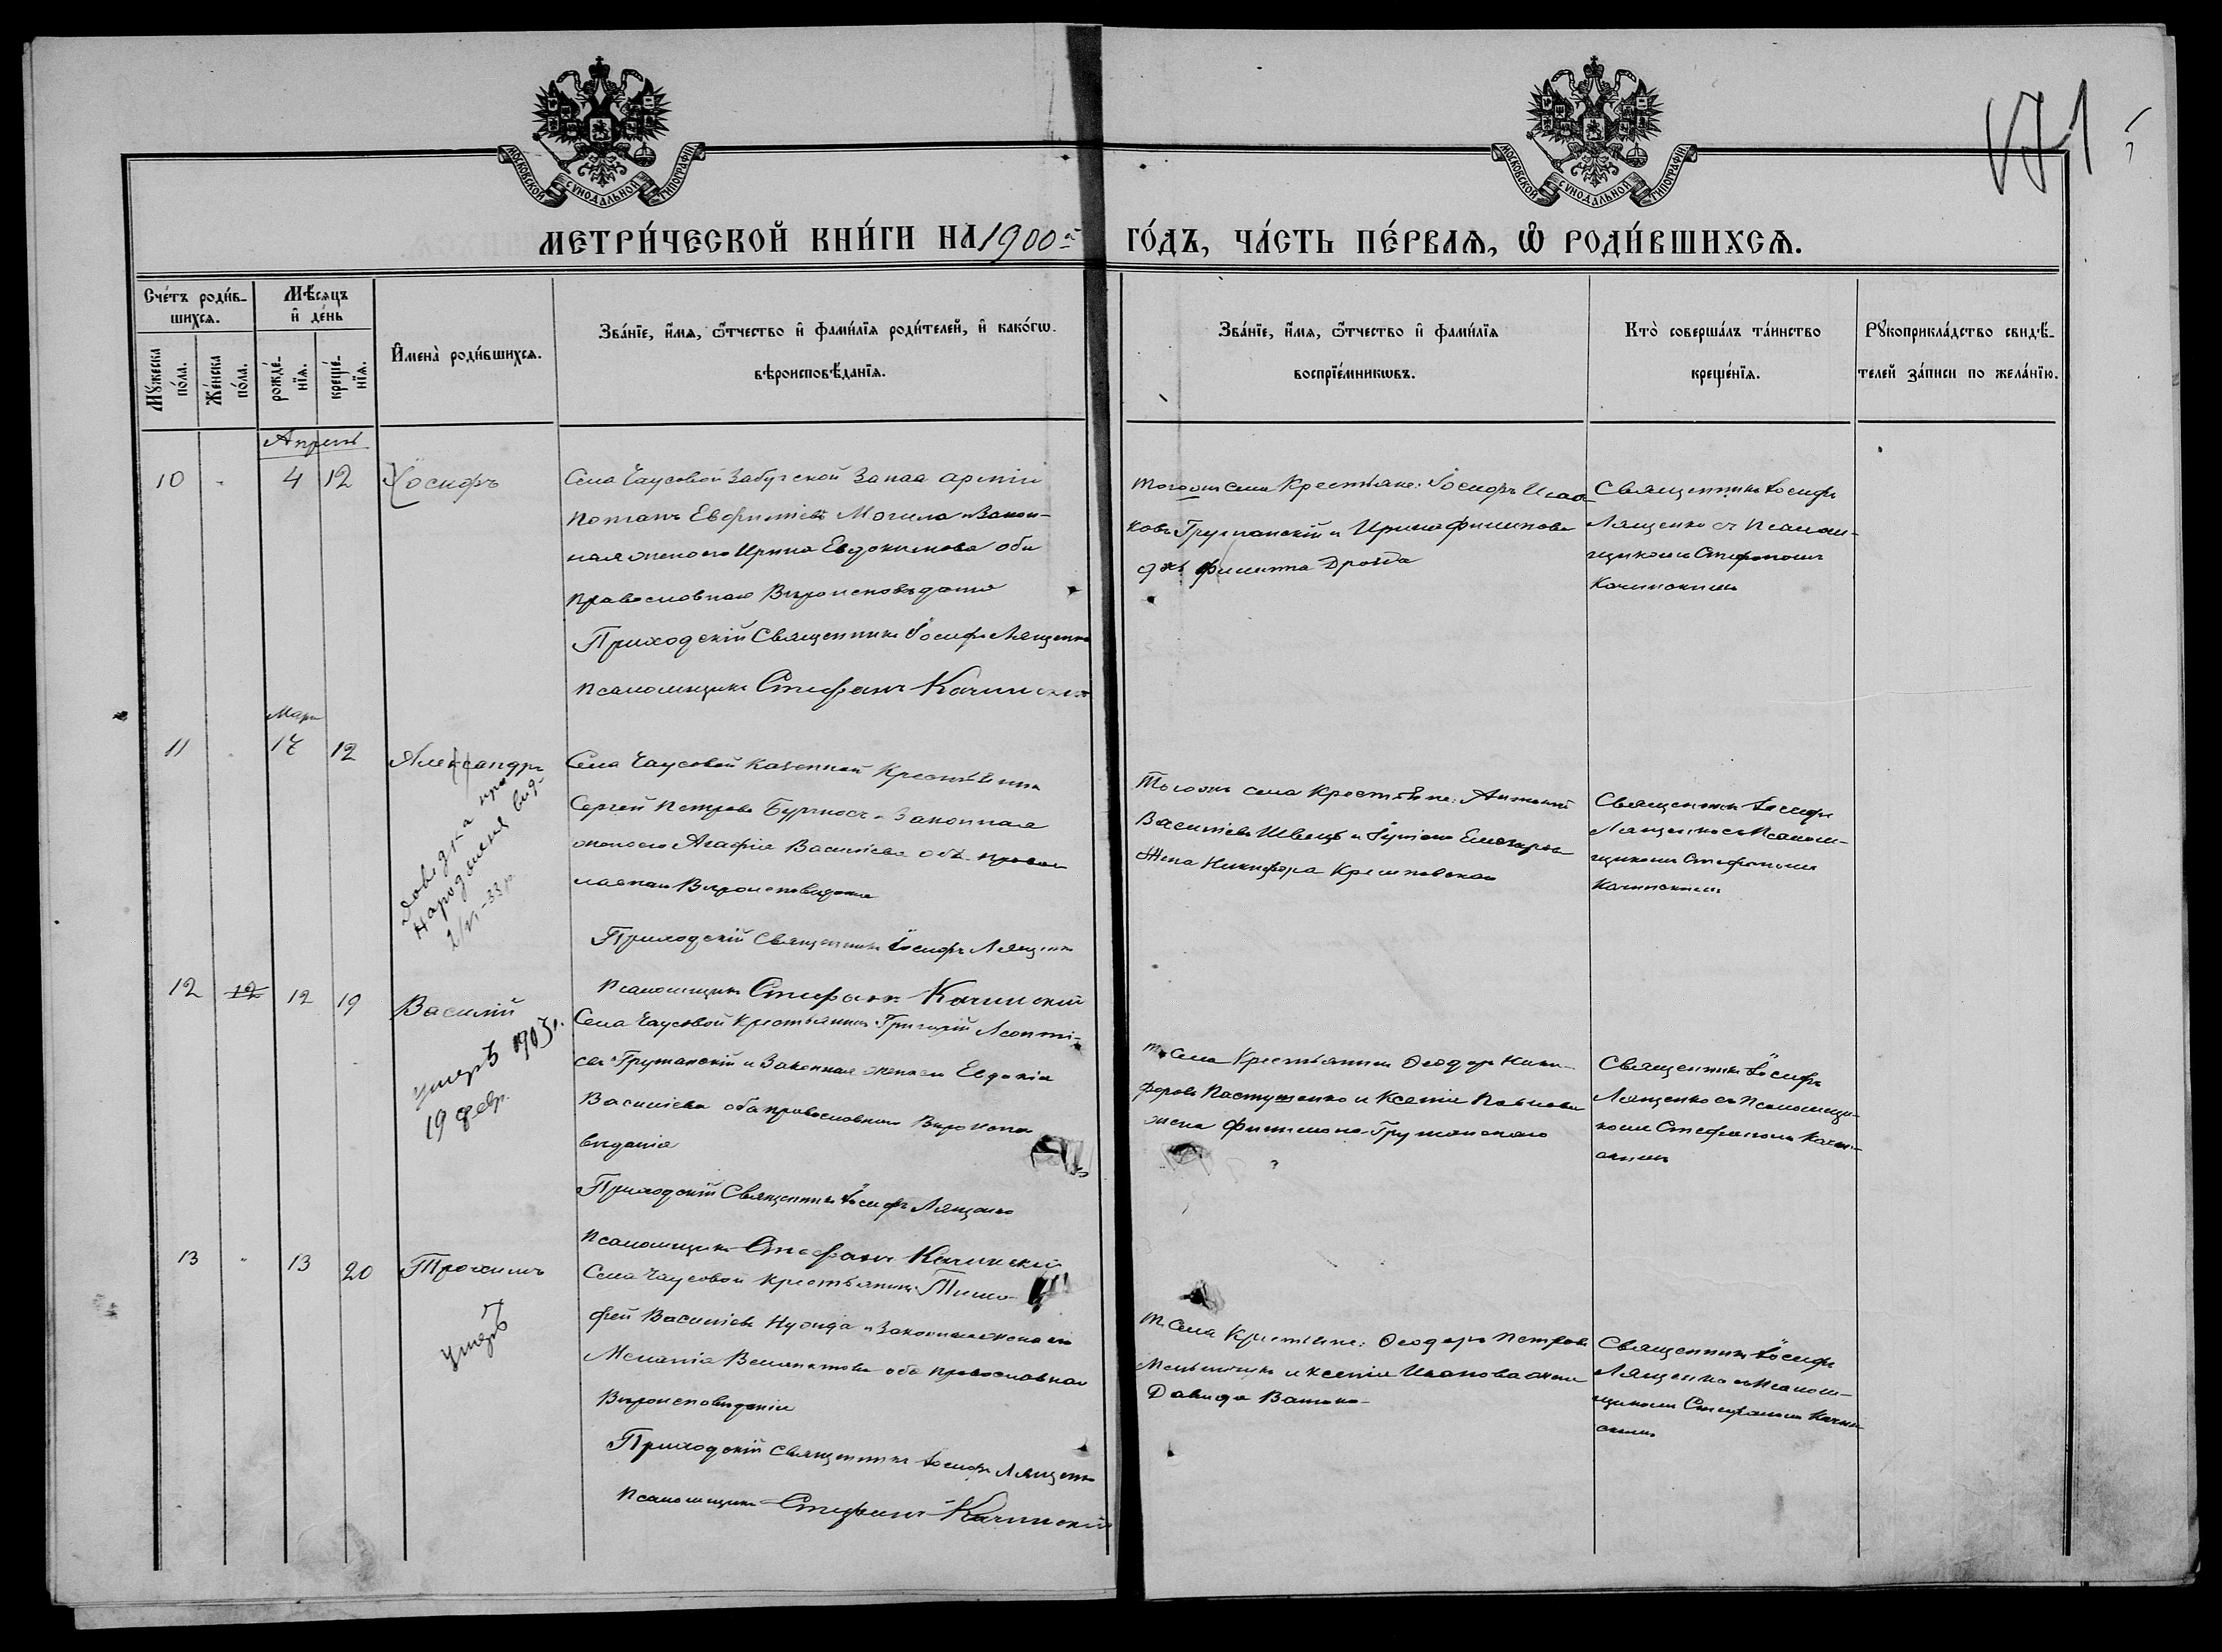 МОСКОВСКОЙ СУНОДАЛЬНОЙ ТИПОГРАФІИ
МОСКОВСКОЙ СУНОДАЛЬНОЙ ТИПОГРАФІИ
МЕТРИ́ЧЕСКОЙ КНИ́ГИ НА 1900й ГО́ДЪ, ЧА́СТЬ ПЕ́РВАѦ, Ѡ҆ РОДИ́ВШИХСѦ.
Сче́тъ роди́в-
шихсѧ.
Мѣ́сѧцъ
и҆ де́нь
Мꙋжеска
по́ла.
Же́нска
по́ла.
рожде́-
нїѧ.
креще́-
нїѧ.
И҆мена̀ роди́вшихсѧ.
Зва́нїе, и҆́мѧ, ѻ҆́тчество и҆ фами́лїѧ роди́телей, и҆ како́гѡ
вѣроисповѣ́данїѧ.
Зва́нїе, и҆́мѧ, ѻ҆́тчество и҆ фами́лїѧ
воспрїе́мникѡвъ.
Кто̀ соверша́лъ та́инство
креще́нїѧ.
Рꙋкоприкла́дство свидѣ́-
телей за́писи по жела́нїю.
Апрель
10 - 4 12 Іосифъ
Села Чаусовой Забугской Запаа арміи
Потапъ Евфиміевъ Могила и Закон-
ная жена его Ирина Евдокимова оба
православнаго Вѣроисповѣданія
Приходскій Священникъ Іосифъ Лященко
Псаломщикъ Стефанъ Качинскій
Того же села Крестьяне: Іосифъ Исаа-
ковъ Гружанскій и Ирина Филипова
Филиппа Дрозда
Священникъ Іосифъ
Лященко съ Псалом-
щикомъ Стефаномъ
Качинскимъ
Мартъ
11 - 17 12 Александръ
Довідка про
народження вид.
2/VI-33 р.
Села Чаусовой Казенной Крестьянинъ
Сергей Петровъ Бурносъ и Законная
жена его Агафія Васильева оба правос
лавнаго Вѣроисповѣданія
Приходскій Священникъ Іосифъ Лященко
Псаломщикъ Стефанъ Качинскій
Того же села Крестьяне: Антоній
Васильевъ Швецъ и
Жена Никифора
Священникъ Іосифъ
Лященко съ Псалом-
щикомъ Стефаномъ
Качинскимъ
12 12 12 19 Василій
умеръ 1903 г.
19 февр.
Села Чаусовой Крестьянинъ Григорій Леонті-
евъ Гружанскій и Законная жена его Евдокія
Васильева оба православнаго Вѣроиспо
вѣданія
Приходскій Священникъ Іосифъ Лященко
Псаломщикъ Стефанъ Качинскій
т. Села Крестьянинъ Ѳеодоръ Ники-
форовъ Пастушенко и Ксенія Павлова
жена Филимона Гружанскаго
Священникъ Іосифъ
Лященко съ Псаломщи-
комъ Стефаномъ Качин-
скимъ
13 - 13 20 Трофимъ
умеръ
Села Чаусовой Крестьянинъ Тимо-
фей Васильевъ и Законная жена его
Меланія оба православнаго
Вѣроисповѣданія
Приходскій Священникъ Іосифъ Лященко
Псаломщикъ Стефанъ Качинскій
т. Села Крестьяне: Ѳеодоръ Петровъ
и Ксенія Иванова жена
Давида
Священникъ Іосифъ
Лященко съ Псалом-
щикомъ Стефаномъ Качин-
скимъ